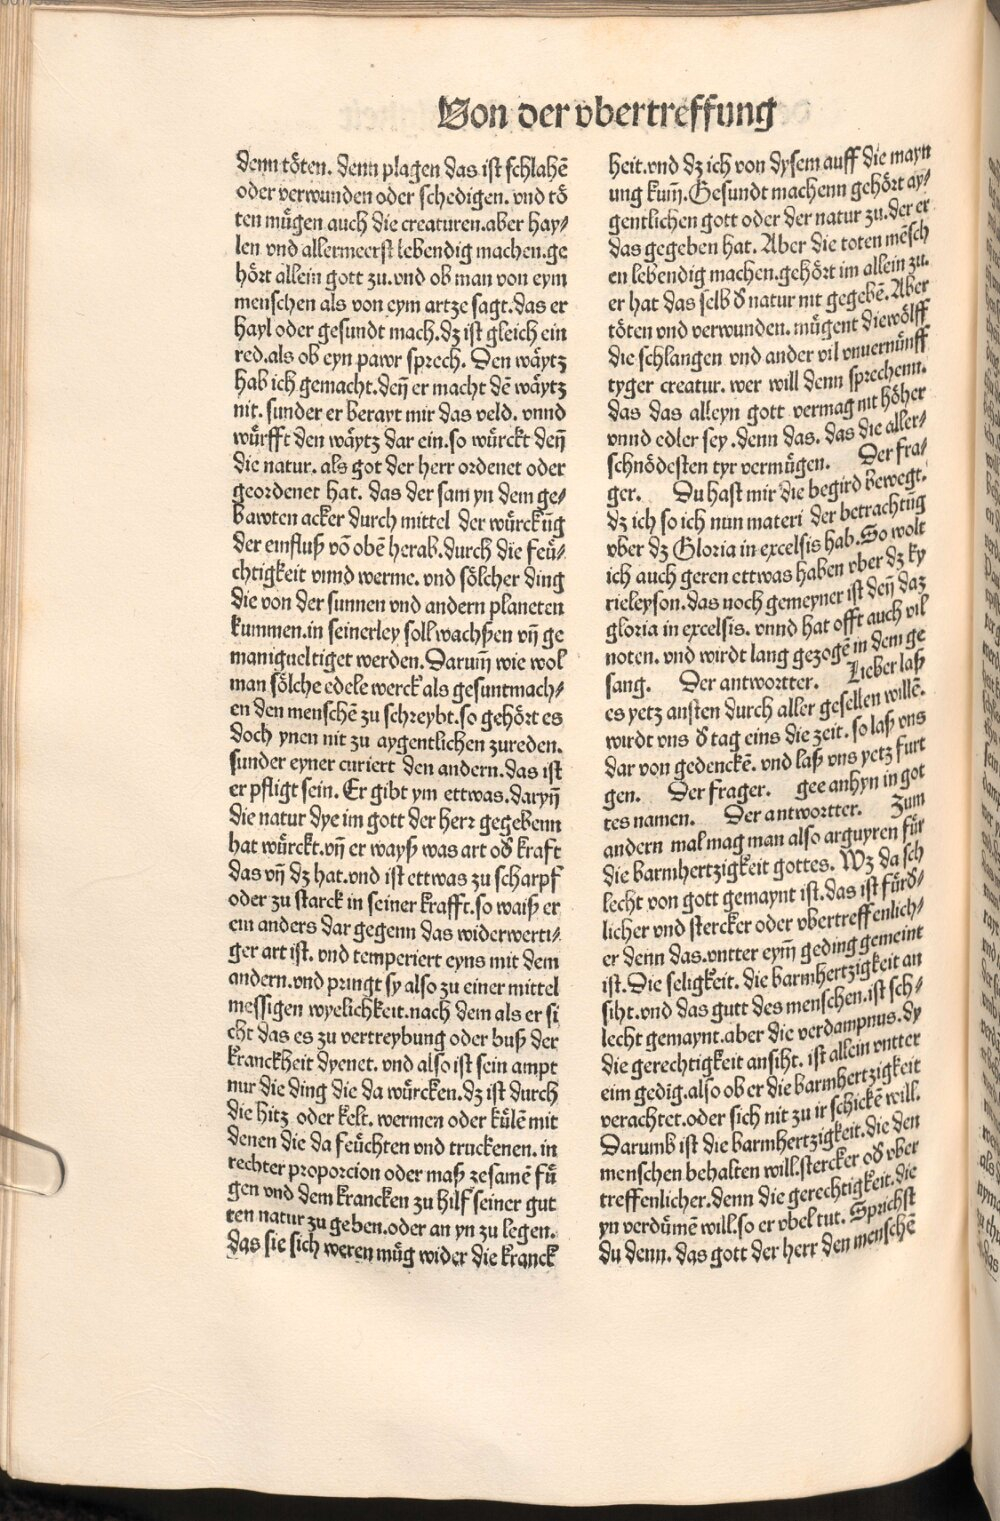 Von der vbertreffung
denn töten. denn plagen das ist schlahē
oder verwunden oder schedigen. vnd tö
ten mügen auch die creaturen.aber hay⸗
len vnd allermeerst lebendig machen.ge
hört allein gott zu.vnd ob man von eym
menschen als von eym artze sagt.das er
hayl oder gesundt mach.dz ist gleich ein
red.als ob eyn pawr sprech. Den wäytz
hab ich gemacht.deñ er macht dē wäytz
nit. sunder er berayt mir das veld. vnnd
würfft den wäytz dar ein.so würckt deñ
die natur. als got der herr ordenet oder
geordenet hat. das der sam yn dem ge⸗
bawten acker durch mittel der würckūg
der einfluß vō obē herab.durch die feü⸗
chtigkeit vnnd werme. vnd sölcher ding
die von der sunnen vnd andern planeten
kummen.in seinerley soll wachßen vñ ge
manigueltiget werden.Darum̄ wie wol
man sölche edele werck als gesuntmach⸗
en den menschē zu schreybt.so gehört es
doch ynen nit zu aygentlichen zureden.
sunder eyner curiert den andern.das ist
er pfligt sein. Er gibt ym ettwas.daryñ
die natur dye im gott der herr gegebenn
hat würckt.vñ er wayß was art oď kraft
das vñ dz hat.vnd ist ettwas zu scharpf
oder zu starck in seiner krafft.so waiß er
ein anders dar gegenn das widerwerti⸗
ger art ist. vnd temperiert eyns mit dem
andern.vnd pringt sy also zu einer mittel
messigen wyelichkeit.nach dem als er si
cht das es zu vertreybung oder buß der
kranckheit dyenet. vnd also ist sein ampt
nur die ding die da würcken.dz ist durch
die hitz oder kelt. wermen oder külē mit
denen die da feüchten vnd truckenen. in
rechter proporcion oder maß zesamē fü
gen vnd dem krancken zu hilf seiner gut
ten natur zu geben.oder an yn zu legen.
das sie sich weren müg wider die kranck
heit.vnd dz ich von dysem auff die mayn
ung kum̄.Gesundt machenn gehört ay⸗
gentlichen gott oder der natur zu.der er
das gegeben hat. Aber die toten mēsch
en lebendig machen.gehört im allein zu.
er hat das selb ď natur nit gegebē.Aber
töten vnd verwunden. mügent die wölff
die schlangen vnd ander vil vnuernünff
tyger creatur. wer will denn sprechenn.
das das alleyn gott vermag nit höher
vnnd edler sey.denn das. das die aller⸗
schnödesten tyr vermügen. Der fra⸗
ger. Du hast mir die begird bewegt.
dz ich so ich nun materi der betrachtūg
vber dz Gloria in excelsis hab.So wolt
ich auch geren ettwas haben vber dz ky
rieleyson.das noch gemeyner ist deñ daz
gloria in excelsis. vnnd hat offt auch vil
noten. vnd wirdt lang gezogē in dem ge
sang. Der antwortter. Lieber laß
es yetz ansten durch aller gesellen willē.
wirdt vns ď tag eins die zeit. so laß vns
dar von gedenckē. vnd laß vns yetz furt
gen. Der frager. gee anhyn in got
tes namen. Der antwortter. Zum
andern mal mag man also arguyren für
die barmhertzigkeit gottes. Wz da sch
lecht von gott gemaynt ist.das ist fürd⸗
licher vnd stercker oder vbertreffenlich⸗
er denn das.vntter eym̄ geding gemeint
ist.Die seligkeit. die barmhertzigkeit an
siht.vnd das gutt des menschen.ist sch⸗
lecht gemaynt.aber die verdampnus.dy
die gerechtigkeit ansiht. ist allein vntter
eim gedig.also ob er die barmhertzigkeit
verachtet.oder sich nit zu ir schickē will.
Darumb ist die barmhertzigkeit.die den
menschen behalten will.stercker oď vber
treffenlicher.denn die gerechtigkeit.die
yn verdümē will.so er vbel tut. Sprichst
du denn. das gott der herr den menschē